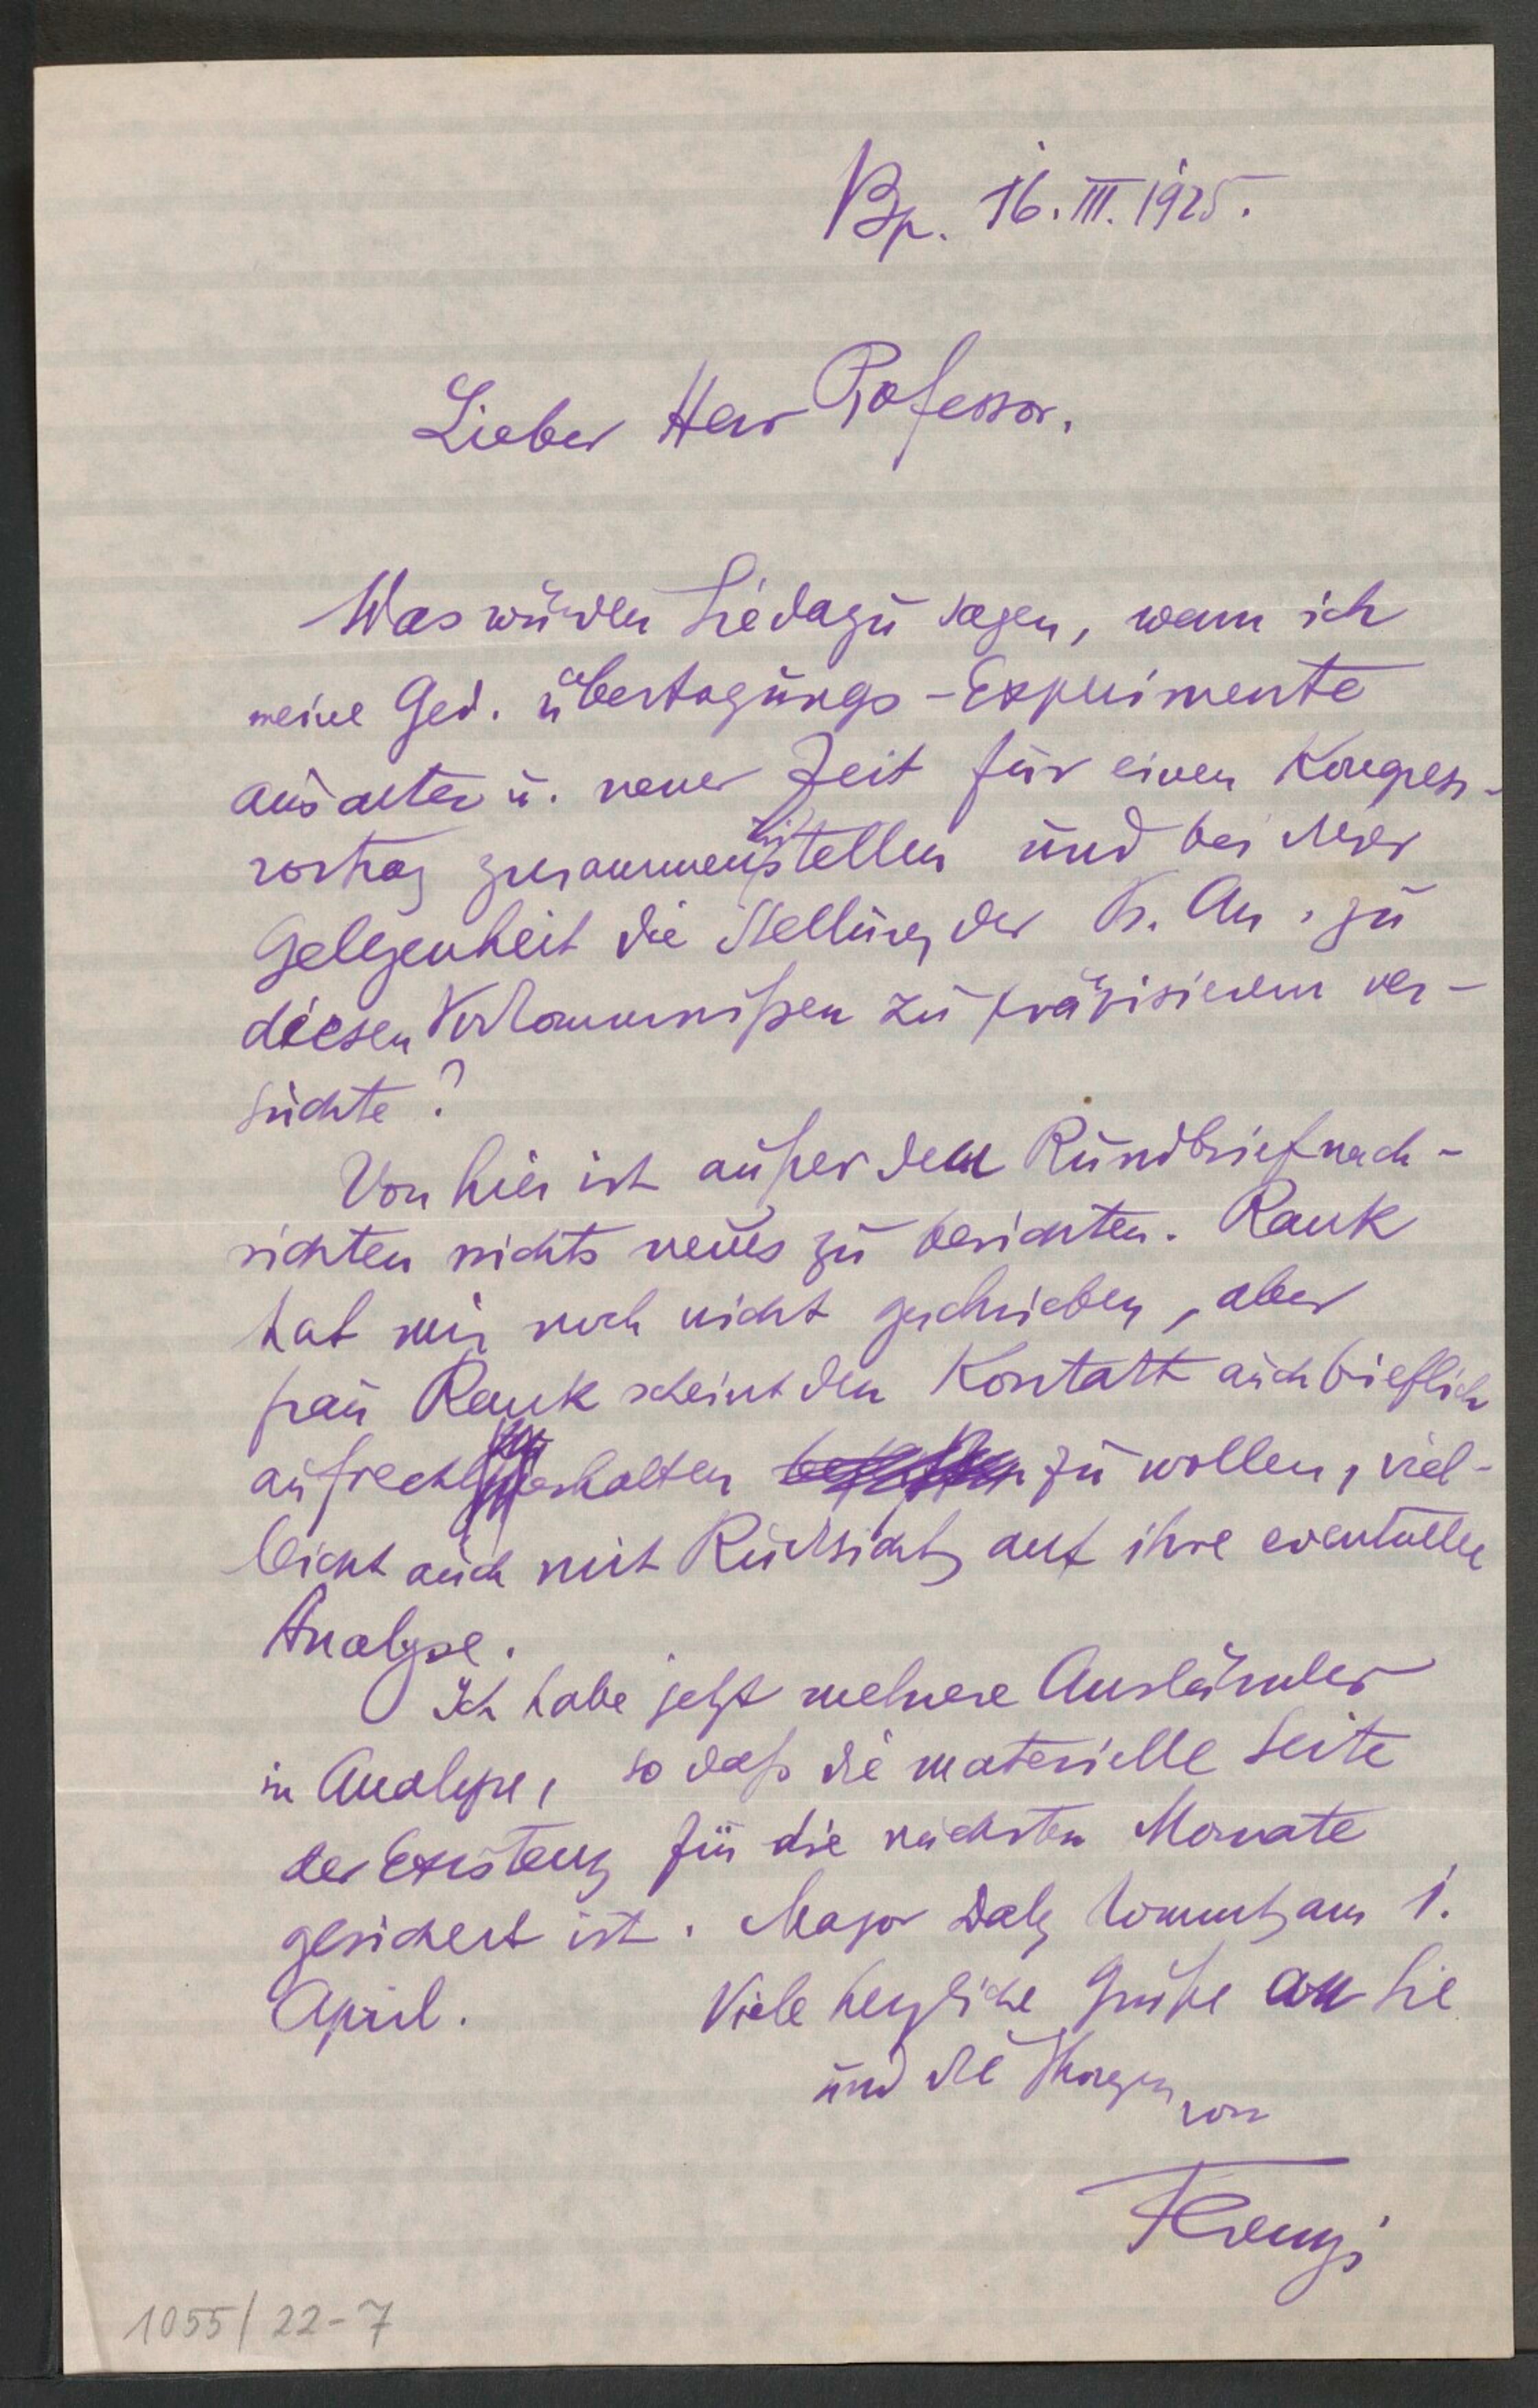 Bp. 16. III. 1925.
Lieber Herr Professor.
Was würden Sie dazu sagen, wenn ich
meine Ged. übertragungs-Experimente
aus alter u. neuer Zeit für einen Kongress-
vortrag zusammenzustellen und bei dieser
Gelegenheit die Stellung der Ps. An. zu
diesen Vorkommnißen zu präzisieren ver-
suchte?
Von hier ist außer den Rundbriefnach-
richten nichts neues zu berichten. Rank
hat mir noch nicht geschrieben, aber
Frau Rank scheint den Kontakt auch brieflich
aufrechterhalten zu wollen, viel-
leicht auch mit Rücksicht auf ihre eventuelle
Analyse.
Ich habe jetzt mehrere Ausländer
in Analyse, so daß die materielle Seite
der Existenz für die nächsten Monate
gesichert ist. Major Daly kommt am 1.
April.
Viele herzliche Grüße an Sie
und die Ihrigen von
Ferenczi
1055/22-7